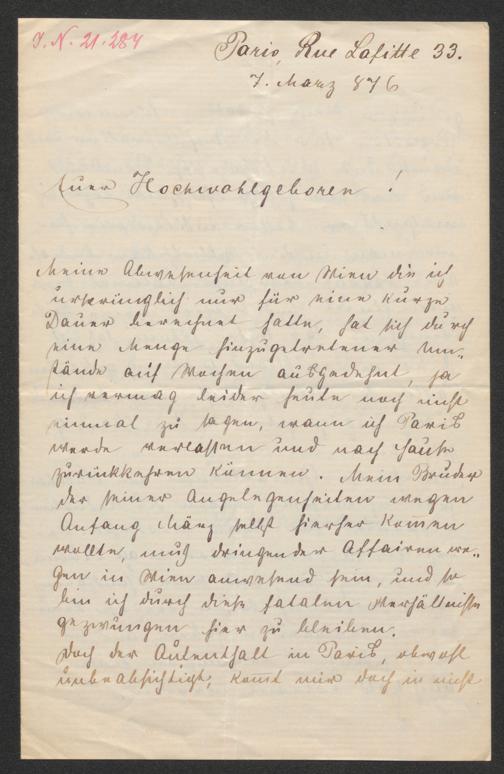 J. N. 21.284
Paris, Rue Lafitte 33.
7. März 876
Euer Hochwohlgeboren !
Meine Abwesenheit von Wien die ich
ursprünglich nur für eine kurze
Dauer berechnet hatte, hat sich durch
eine Menge hinzugetretener Um-
stände auf Wochen ausgedehnt, ja
ich vermag leider heute noch nicht
einmal zu sagen, wann ich Paris
werde verlassen und nach Hause
zurückkehren können. Mein Bruder
der seiner Angelegenheiten wegen
Anfang März selbst hierher komen
wollte, muß dringender Affairen we-
gen in Wien anwesend sein, und so
bin ich durch diese fatalen Verhältnisse
gezwungen hier zu bleiben.
Doch der Aufenthalt in Paris, obwohl
unbeabsichtigt, komt mir doch in nicht